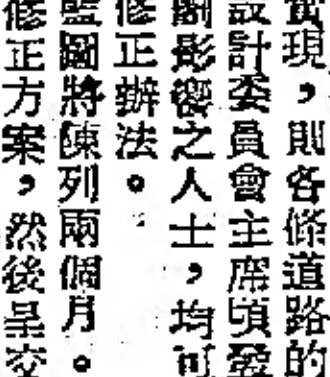 實現，則各條道路的
設計委員會主席頃發
劃影響之人士，均可
修正辦法。
藍圖將陳列兩個月。
修正方案，然後呈交